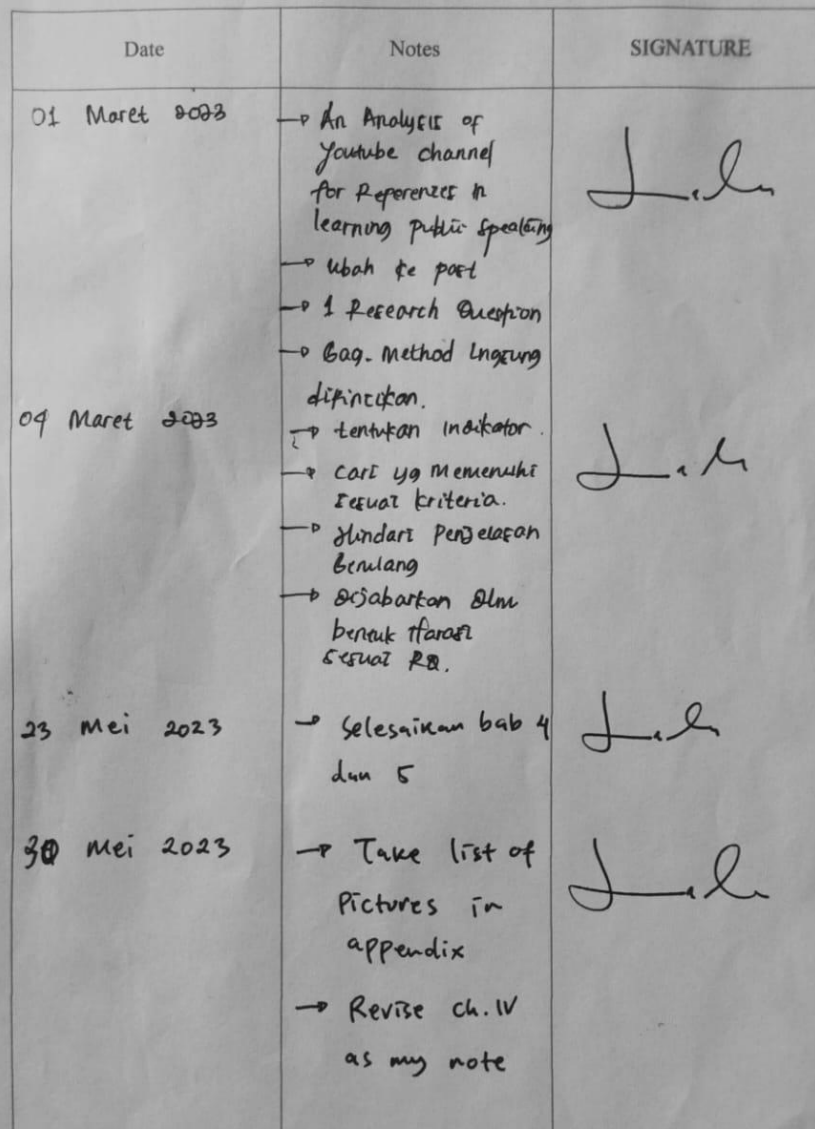 Date Notes SIGNATURE
01 Maret 2023 → An Analysis of
Youtube channel
for References in
learning public speaking
→ Ubah ke past
→ 1 Research Question
→ Bag. Method Lngsung
difincikan.
04 Maret 2023 → tentukan Indikator.
→ Cari yg memenuhi
sesuai kriteria.
→ Hindari Penjelasan
Berulang
→ Dijabarkan Dlm
bentuk Narasi
sesuai RQ.
23 Mei 2023 → Selesaikan bab 4
dan 5
30 Mei 2023 → Take list of
Pictures in
appendix
→ Revise ch. IV
as my note